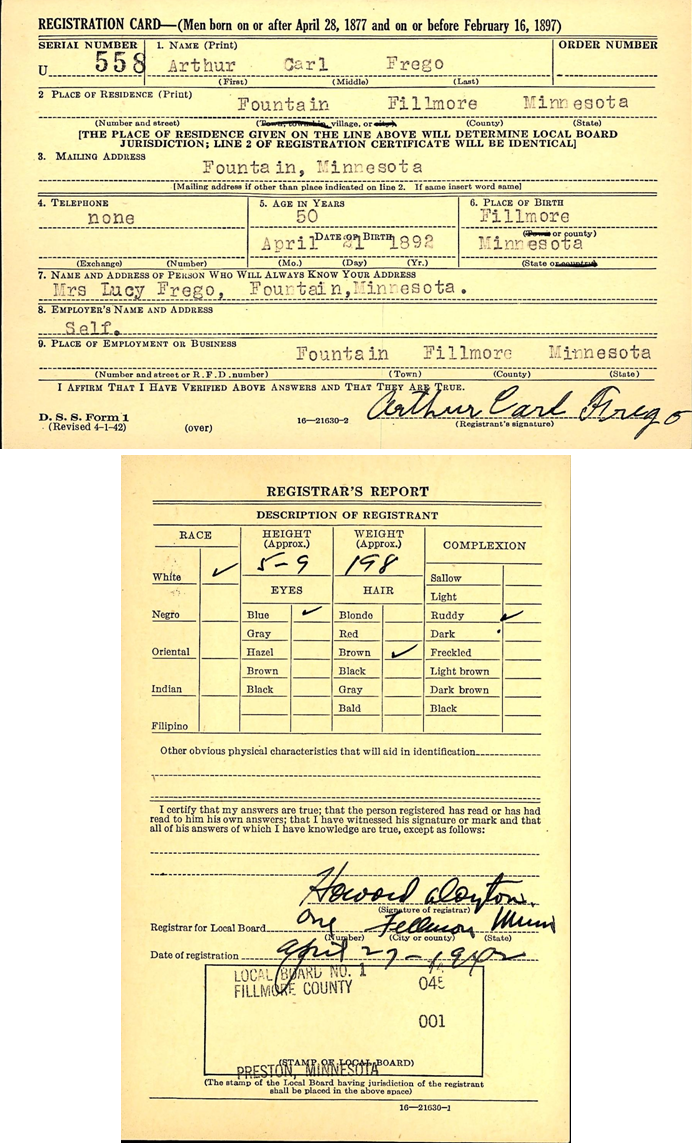 REGISTRATION CARD—(Men born on or after April 28, 1877 and on or before February 16, 1897)
SERIAL NUMBER 1. NAME (Print) ORDER NUMBER
U 558 Arthur Carl Frego
(First) (Middle) (Last)
2 PLACE OF RESIDENCE (Print)
Fountain Fillmore Minnesota
(Number and street) (Town, township, village, or city) (County) (State)
[THE PLACE OF RESIDENCE GIVEN ON THE LINE ABOVE WILL DETERMINE LOCAL BOARD
JURISDICTION; LINE 2 OF REGISTRATION CERTIFICATE WILL BE IDENTICAL]
3. MAILING ADDRESS
Fountain, Minnesota
[Mailing address if other than place indicated on line 2. If same insert word same]
4. TELEPHONE 5. AGE IN YEARS 6. PLACE OF BIRTH
none 50 Fillmore
DATE OF BIRTH (Town or county)
April 21 1892 Minnesota
(Exchange) (Number) (Mo.) (Day) (Yr.) (State or country)
7. NAME AND ADDRESS OF PERSON WHO WILL ALWAYS KNOW YOUR ADDRESS
Mrs Lucy Frego, Fountain, Minnesota.
8. EMPLOYER'S NAME AND ADDRESS
Self.
9. PLACE OF EMPLOYMENT OR BUSINESS
Fountain Fillmore Minnesota
(Number and street or R. F. D. number) (Town) (County) (State)
I AFFIRM THAT I HAVE VERIFIED ABOVE ANSWERS AND THAT THEY ARE TRUE.
Arthur Carl Frego
D. S. S. Form 1
(Revised 4-1-42) (over) 16—21630-2 (Registrant's signature)
REGISTRAR'S REPORT
DESCRIPTION OF REGISTRANT
RACE HEIGHT (Approx.) WEIGHT (Approx.) COMPLEXION
5-9 198
White ✓ Sallow
EYES HAIR Light
Negro Blue ✓ Blonde Ruddy ✓
Gray Red Dark
Oriental Hazel Brown ✓ Freckled
Brown Black Light brown
Indian Black Gray Dark brown
Bald Black
Filipino
Other obvious physical characteristics that will aid in identification
I certify that my answers are true; that the person registered has read or has had
read to him his own answers; that I have witnessed his signature or mark and that
all of his answers of which I have knowledge are true, except as follows:
Howard
(Signature of registrar)
Registrar for Local Board One Fillmore Minn
(Number) (City or county) (State)
Date of registration April 27-1942
LOCAL BOARD NO. 1
FILLMORE COUNTY 045
001
(STAMP OF LOCAL BOARD)
PRESTON, MINNESOTA
(The stamp of the Local Board having jurisdiction of the registrant
shall be placed in the above space)
16—21630-1